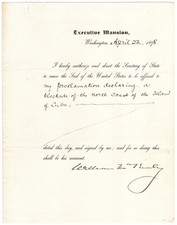 Executive Mansion,
Washington, April 22, 1898
I hereby authorize and direct the Secretary of State
to cause the Seal of the United States to be affixed to
my proclamation declaring a
blockade of the north coast of the Island
of Cuba.
dated this day, and signed by me; and for so doing this
shall be his warrant.
William McKinley